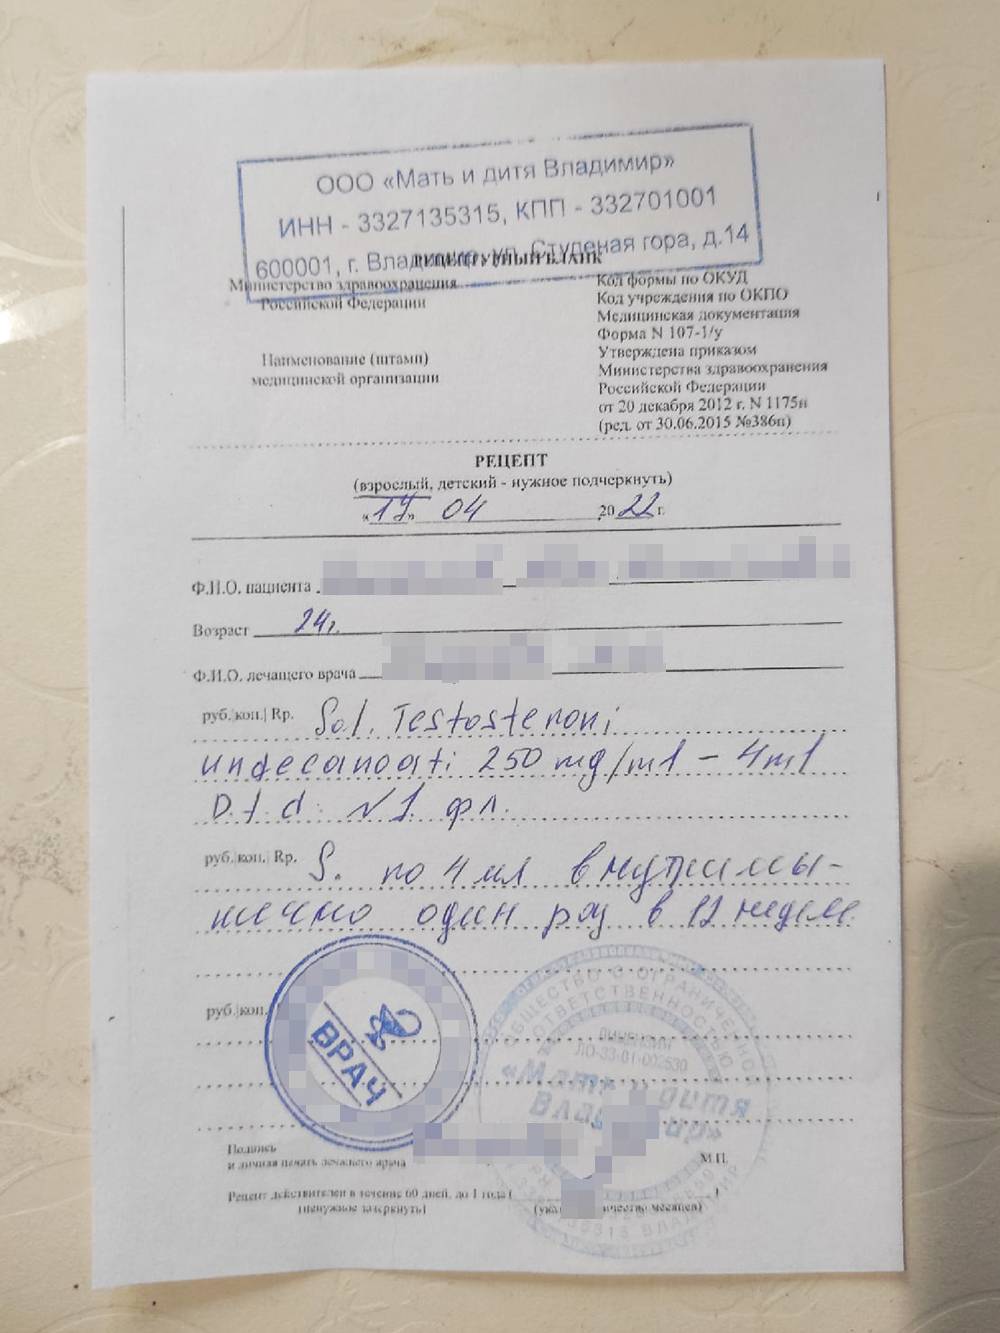 ООО «Мать и дитя Владимир»
ИНН - 3327135315, КПП - 332701001
600001, г. Владимир, ул. Студеная гора, д.14
РЕЦЕПТУРНЫЙ БЛАНК
Министерство здравоохранения
Российской Федерации
Наименование (штамп)
медицинской организации
Код формы по ОКУД
Код учреждения по ОКПО
Медицинская документация
Форма N 107-1/у
Утверждена приказом
Министерства здравоохранения
Российской Федерации
от 20 декабря 2012 г. N 1175н
(ред. от 30.06.2015 №386н)
РЕЦЕПТ
(взрослый, детский - нужное подчеркнуть)
«17» 04 2022 г.
Ф.И.О. пациента
Возраст 24г.
Ф.И.О. лечащего врача
руб.|коп.| Rp. Sol. Testosteroni
undecanoati 250 mg/ml - 4ml
D.t.d. N 1. фл.
руб.|коп.| Rp. S. по 4 мл внутримы-
шечно один раз в 12 недель
руб.|коп.
ВРАЧ
ОБЩЕСТВО С ОГРАНИЧЕННОЙ
ОТВЕТСТВЕННОСТЬЮ
ЛИЦЕНЗИЯ
ЛО-33-01-002530
«Мать и дитя
Владимир»
Подпись
и личная печать лечащего врача
М.П.
Рецепт действителен в течение 60 дней, до 1 года (
)
(ненужное зачеркнуть)
количество месяцев)